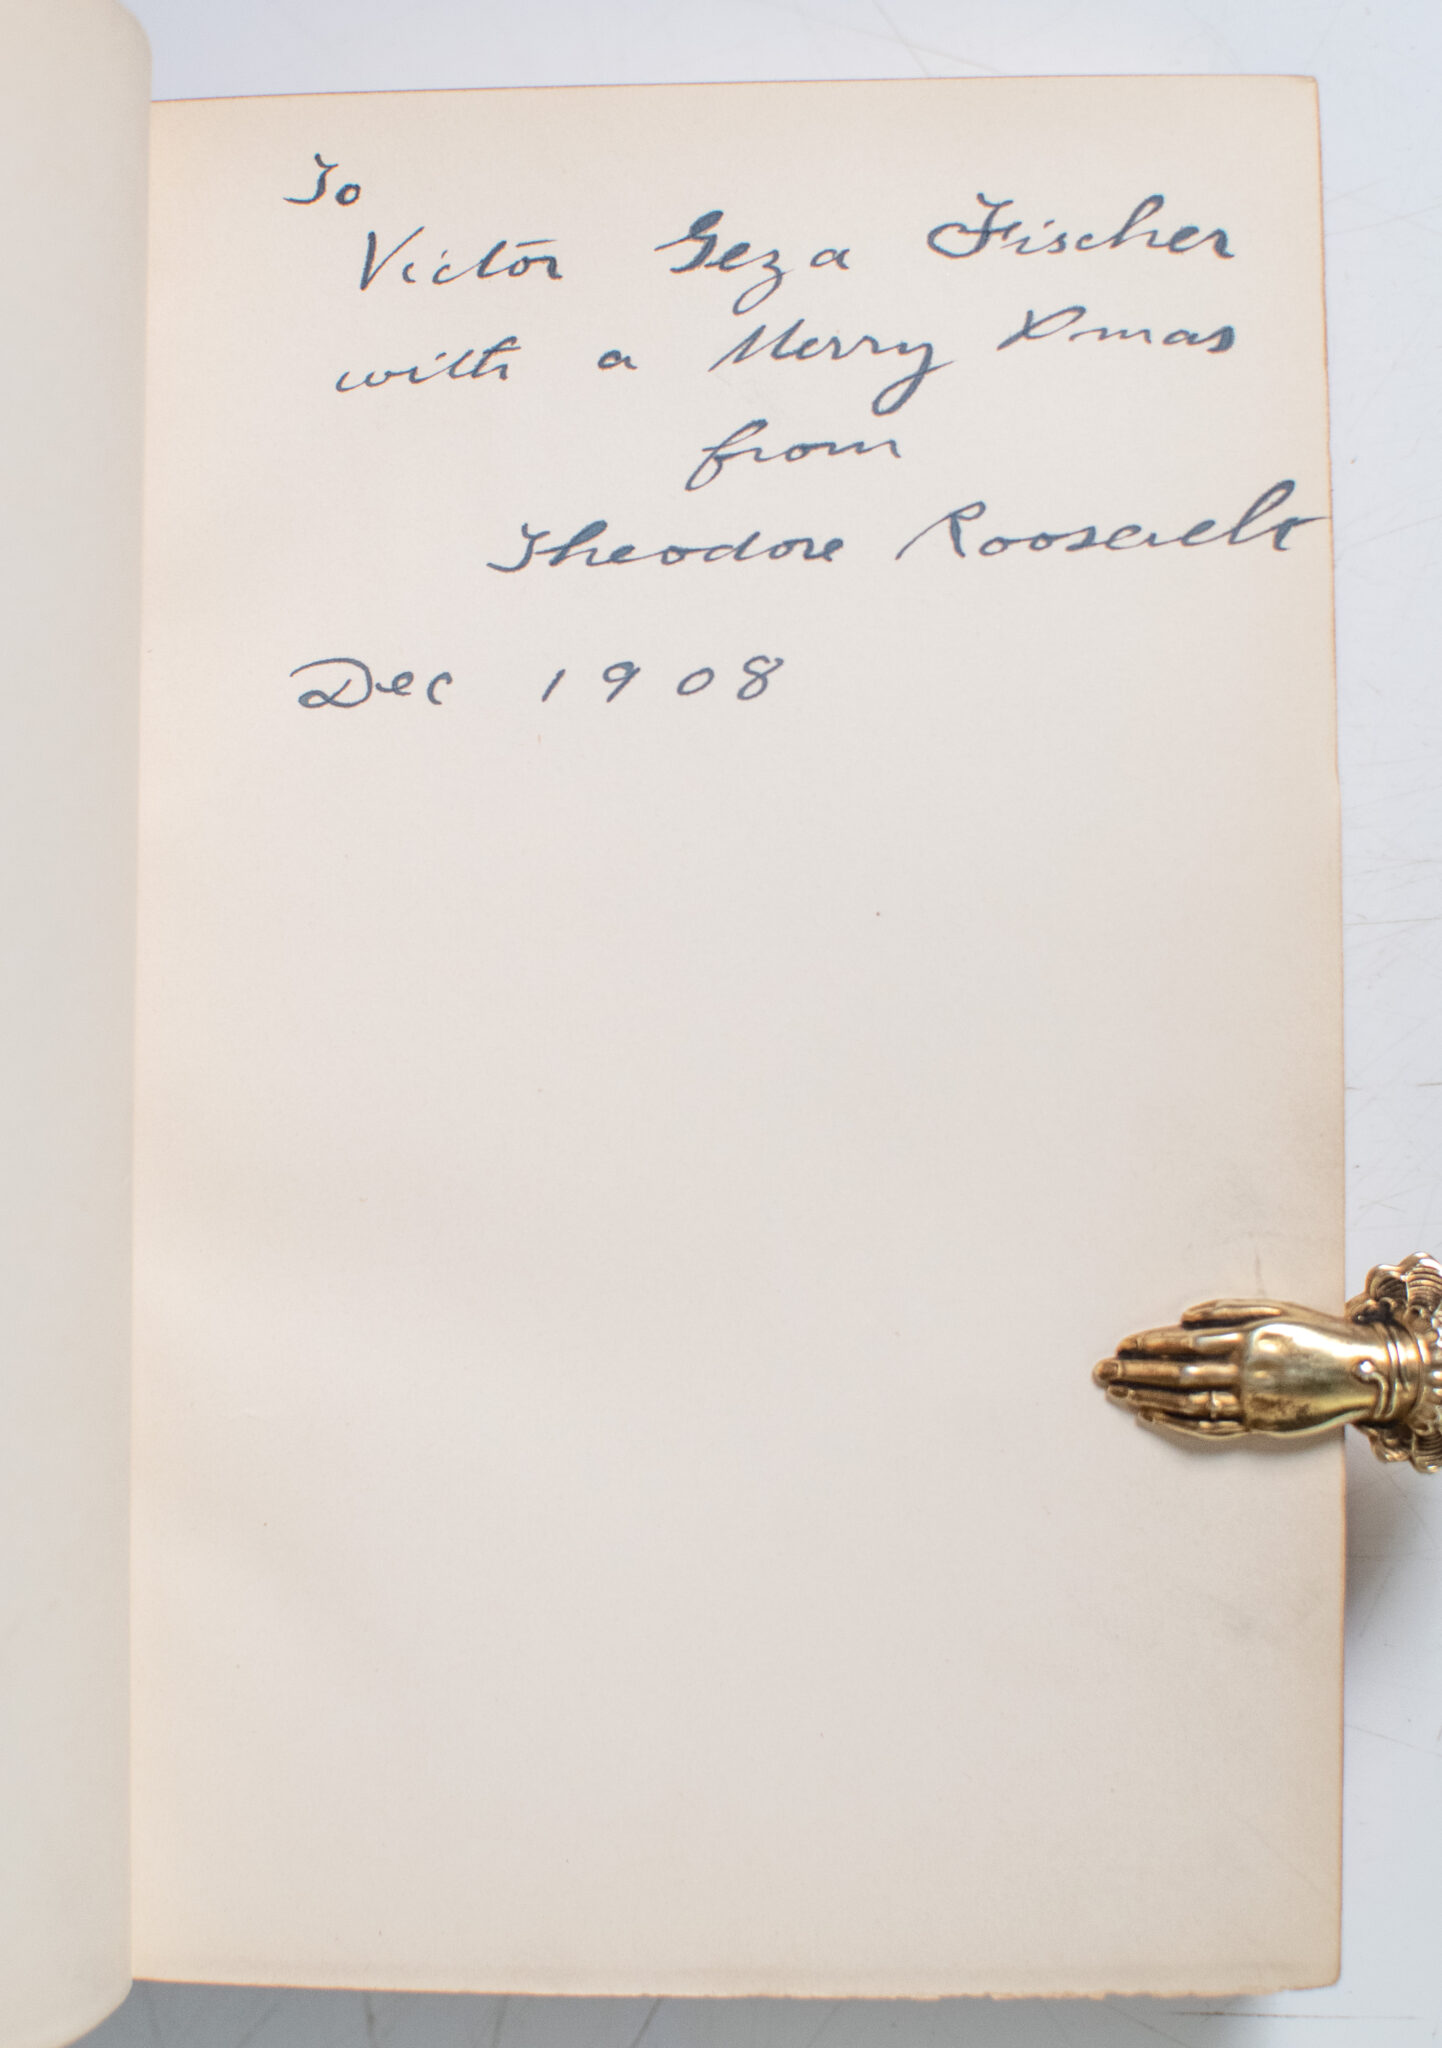 To
Victor Geza Fischer
with a Merry Xmas
from
Theodore Roosevelt
Dec 1908